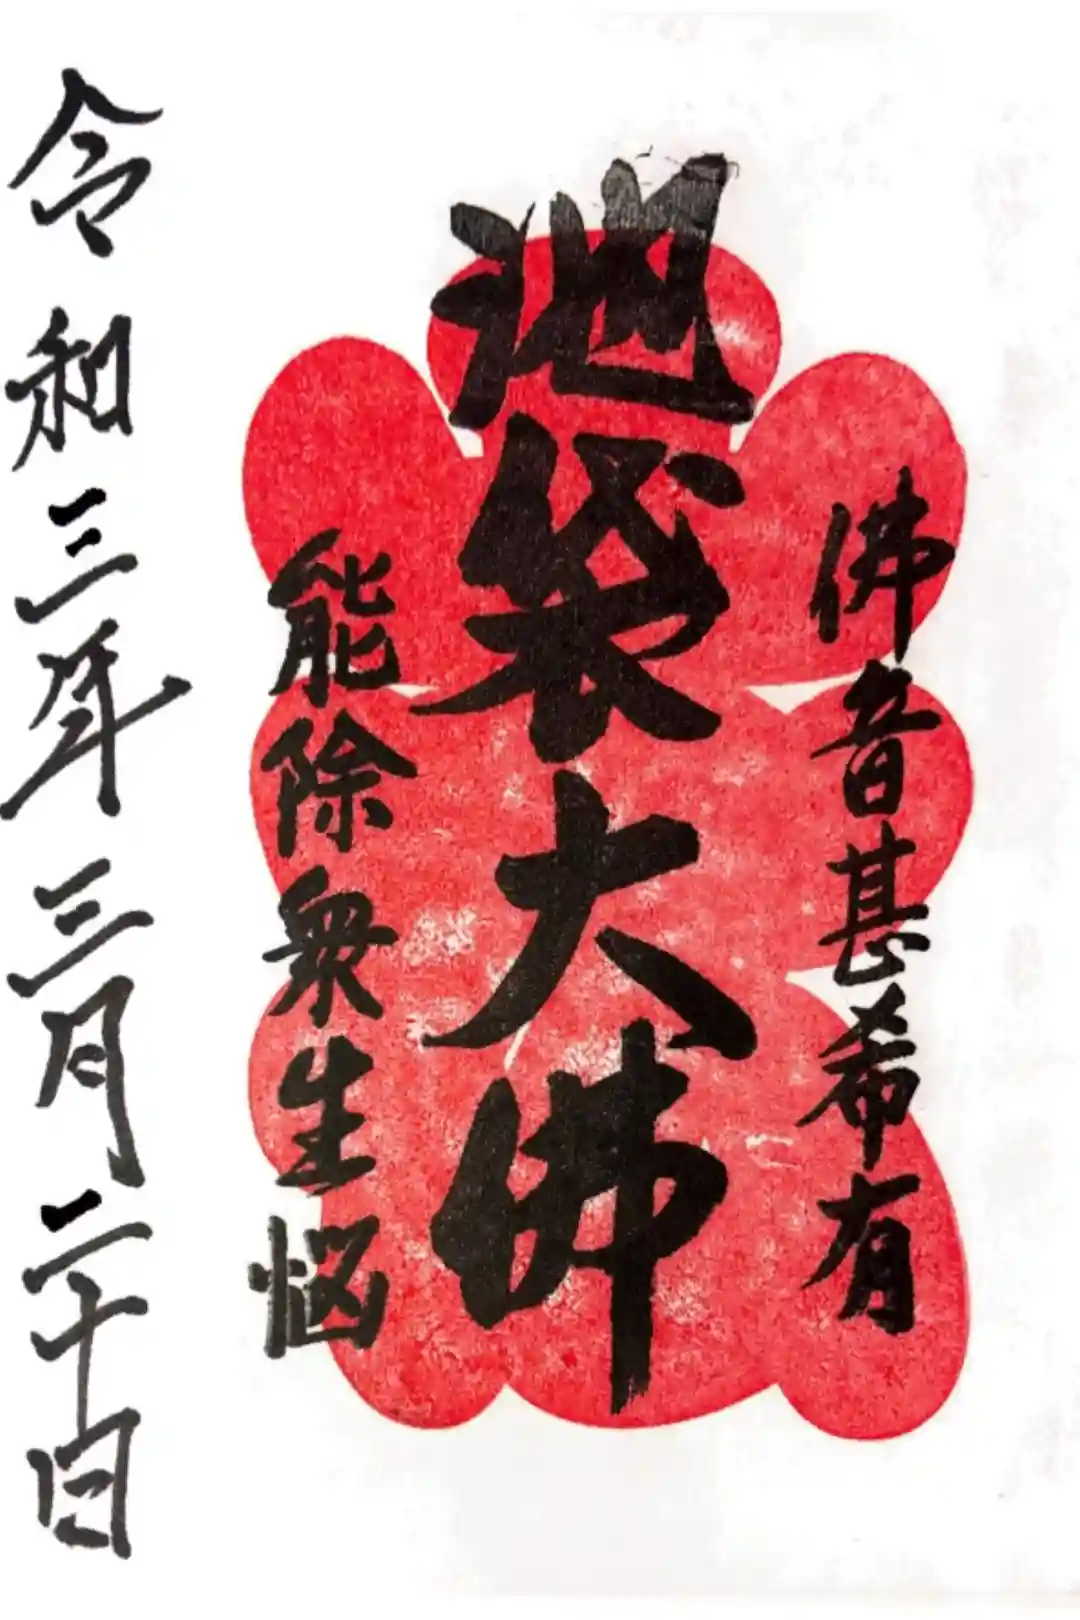 佛音甚希有
池袋大佛
能除衆生悩
令和三年三月二十日